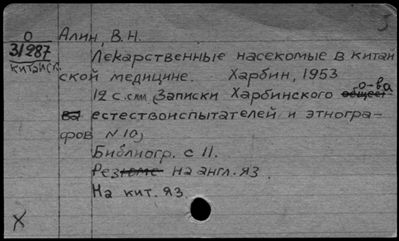 О Алин, В.Н.
3/287
китайск.
Лекарственные насекомые в китай
ской медицине. Харбин, 1953
12 с. (Записки Харбинского о-ва
естествоиспытателей и этногра-
фов № 10)
Библиогр. с 11.
Рез. на англ. яз.
На кит. яз.
X